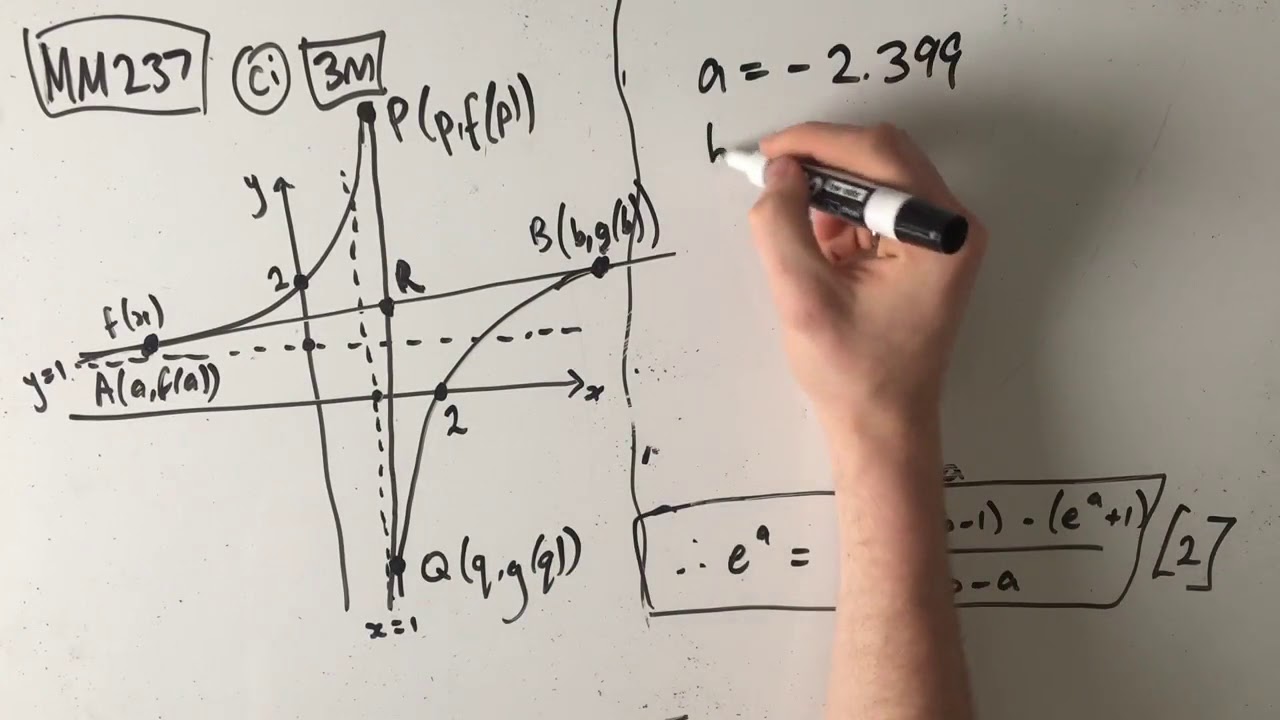 MM237 ci 3M
P(p,f(p))
y
2
B(b,g(b))
R
f(x)
y=1
A(a,f(a))
x
2
Q(q,g(q))
x=1
a = -2.399
∴ e^a =
-1) - (e^a+1)
-a
[2]